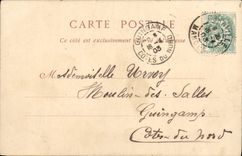 CARTE POSTALE
Ce côté est exclusivement réservé
GUINGAMP
CÔTES DU NORD
03
Mademoiselle Urvoy
Moulin des Salles
Guingamp
Côtes du Nord